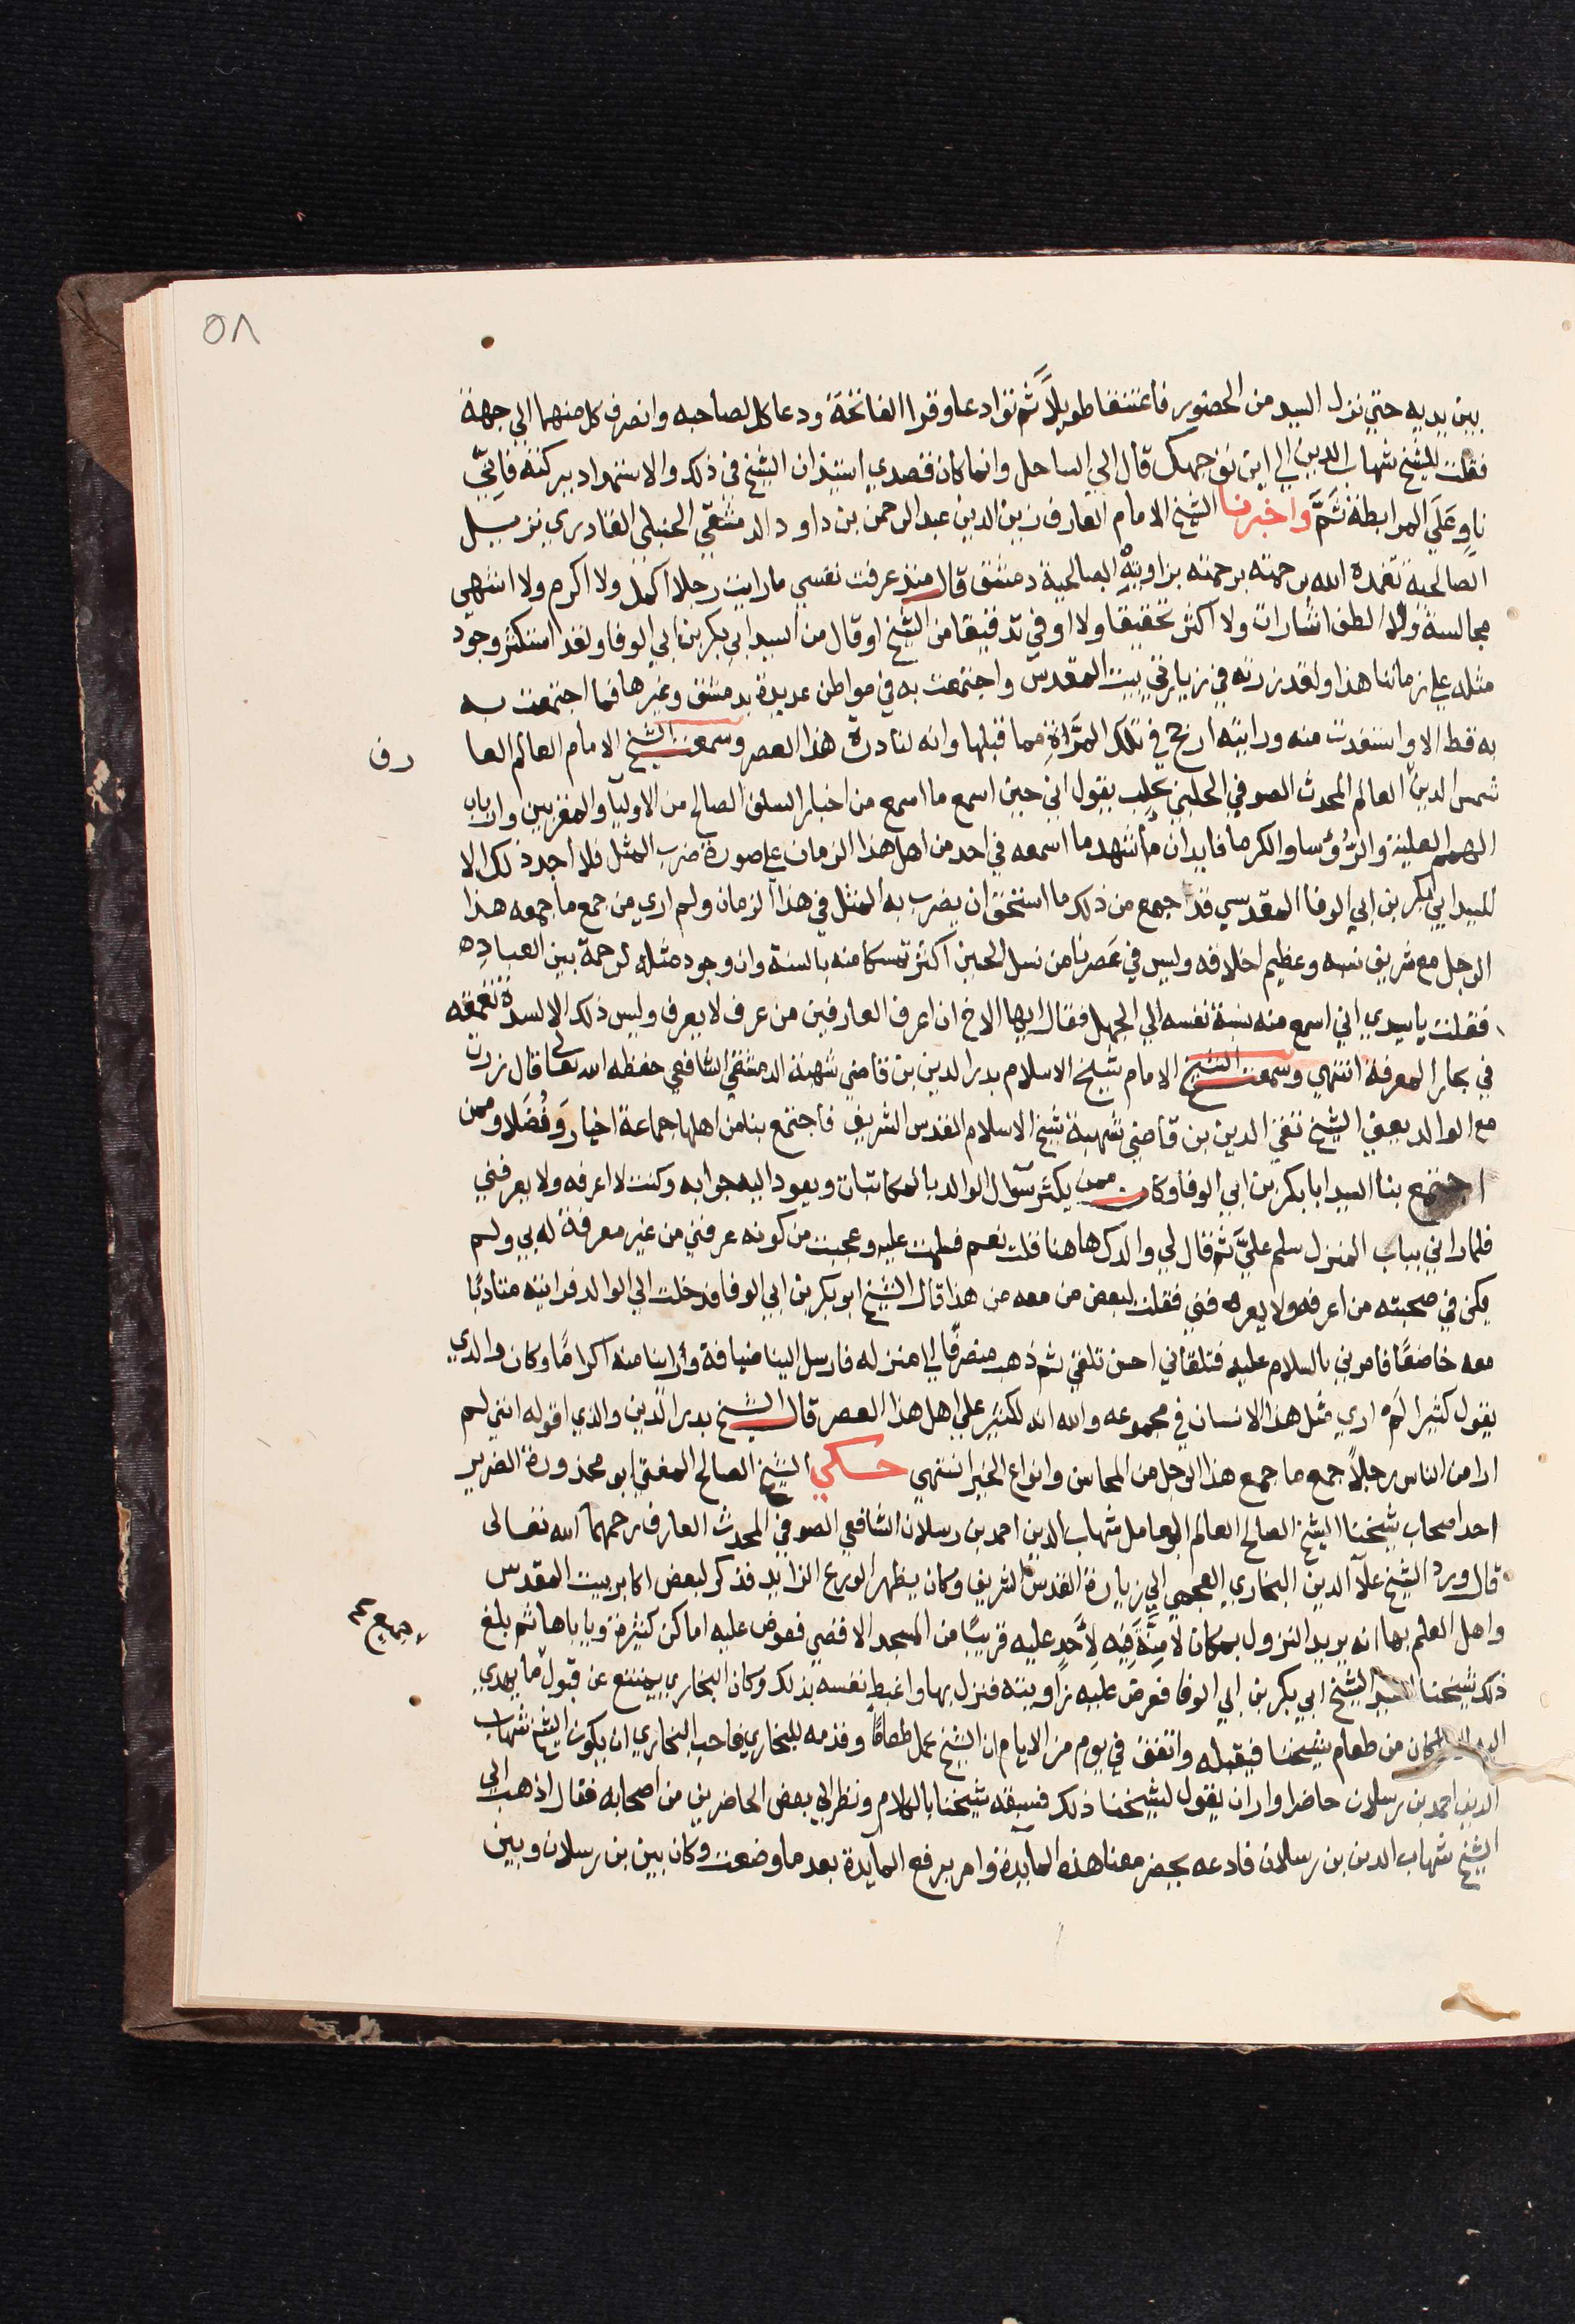 ٥٨
بين يديه حتي نزل السيد من الحضور فاعتنقا طويلاً ثم توادعا وقرا الفاتحة ودعا كل لصاحبه وانصرف كل منهما الي جهة
فقلت للشيخ شهاب الدين الي اين توجهك قال الي الساحل وانما كان قصدي استيذان الشيخ في ذلك والاستمداد ببركته فاني
ناوٍ علي المرابطة ثم واخبرنا الشيخ الامام العارف زين الدين عبد الرحمن بن داود الدمشقي الحنبلي القادري نزيل
الصالحية تغمده الله برحمته برحمته بزاويته الصالحية دمشق قال منذ عرفت نفسي ما رايت رجلا اكمل ولا اكرم ولا اشهي
مجالسة ولا الطف اشارات ولا اكثر تحقيقا ولا اوفي تدقيقا من الشيخ او قال من السيد ابي بكر بن ابي الوفا ولقد استكثر وجود
مثله علي زماننا هذا ولقد زرته في زيارتي بيت المقدس واجتمعت به في مواطن عديدة بدمشق وغيرها فما اجتمعت به
به قط الا واستفدت منه ورايته ارجح في تلك المرة مما قبلها وانه لنادرة هذا العصر وسمعت الشيخ الامام العالم العا
رف
شمس الدين العالم المحدث الصوفي الحلبي بحلب يقول اني حين اسمع ما اسمع من اخبار السلف الصالح من الاوليا والمقربين وارباب
الهمم العلية والرؤسا والكرما فايد ان ما اشهد ما اسمعه في احد من اهل هذا الزمان علي صورة ضرب المثل فلا اجد ذلك الا
للسيد ابي بكر بن ابي الوفا المقدسي قد جمع من ذلك ما استحق ان يضرب به المثل في هذا الزمان ولم اري من جمع ما جمعه هذا
الرجل مع شريف نسبه وعظيم اخلاقه وليس في عصرنا من نسل الحسين اكثر تمسكا منه بالسنة وان وجود مثله لرحمة بين العباد
فقلت ياسيدي اني اسمع منه نسبة نفسه الي الجهل فقال ايها الاخ ان اعرف العارفين من عرف لا يعرف وليس ذلك الا لشدة تعمقه
في بحار المعرفة انتهي وسمعت الشيخ الامام شيخ الاسلام بدر الدين بن قاضي شهبة الدمشقي الشافعي حفظه الله تعالي قال زرت
مع الوالد يعني الشيخ تقي الدين بن قاضي شهبة شيخ الاسلام القدس الشريف فاجتمع بنا من اهلها جماعة اخيار وفضلا وممن
اجتمع بنا السيد ابا بكر بن ابي الوفا وكان ممن يكثر سوال الوالد بالمكاتبات ويعود اليه جوابه وكنت لا اعرفه ولا يعرفني
فلما راني بباب المنزل سلم عليّ ثم قال لي والدك هاهنا قلت نعم فسلمت عليه وعجبت من كونه عرفني من غير معرفة له بي ولم
يكن في صحبته من اعرفه ولا يعرفني فقلت لبعض من معه من هذا قال الشيخ ابو بكر بن ابي الوفا فدخلت الي الوالد فرايته متادبا
معه خاضعا فامرني بالسلام عليه فتلقاني احسن تلقي ثم ذهب منصرفا الي منزله فارسل الينا ضيافة وراينا منه اكراما وكان والدي
يقول كثيرا لم اري مثل هذا الانسان في مجموعه والله انه لكثير علي اهل هذا العصر قال الشيخ بدر الدين والذي اقوله انني لم
ارا من الناس رجلاً جمع ما جمع هذا الرجل من المحاسن وانواع الخير انتهي حكي الشيخ الصالح المفتي ابو محذورة الضرير
احد اصحاب شيخنا الشيخ الصالح العالم العامل شهاب الدين احمد بن رسلان الشافعي الصوفي المحدث العارف رحمهما الله تعالي
قال ورد الشيخ علا الدين البخاري العجمي الي زيارة القدس الشريف وكان يظهر الورع الزايد فذكر لبعض اكابر بيت المقدس
واهل العلم بها انه يريد النزول بمكان لا منة فيه لاحد عليه قريبا من المسجد الاقصي فعرض عليه اماكن كثيرة وياباها ثم بلغ
ذلك شيخنا السيد الشيخ ابي بكر بن ابي الوفا فعرض عليه زاويته فنزل بها واغبط نفسه بذلك وكان البخاري يمتنع عن قبول ما يهدي
اليه الا ان كان من طعام شيخنا فيقبله واتفق في يوم من الايام ان الشيخ عمل طعاما وقدمه للبخاري فاحب البخاري ان يكون الشيخ شهاب
الدين احمد بن رسلان حاضرا واراد ان يقول لشيخنا ذلك فسبقه شيخنا بالكلام ونظر الي بعض الحاضرين من اصحابه فقال اذهب الي
الشيخ شهاب الدين بن رسلان فادعه يحضر معنا هذه المايدة وامر برفع المايدة بعد ما وضعت وكان بين بن رسلان وبين